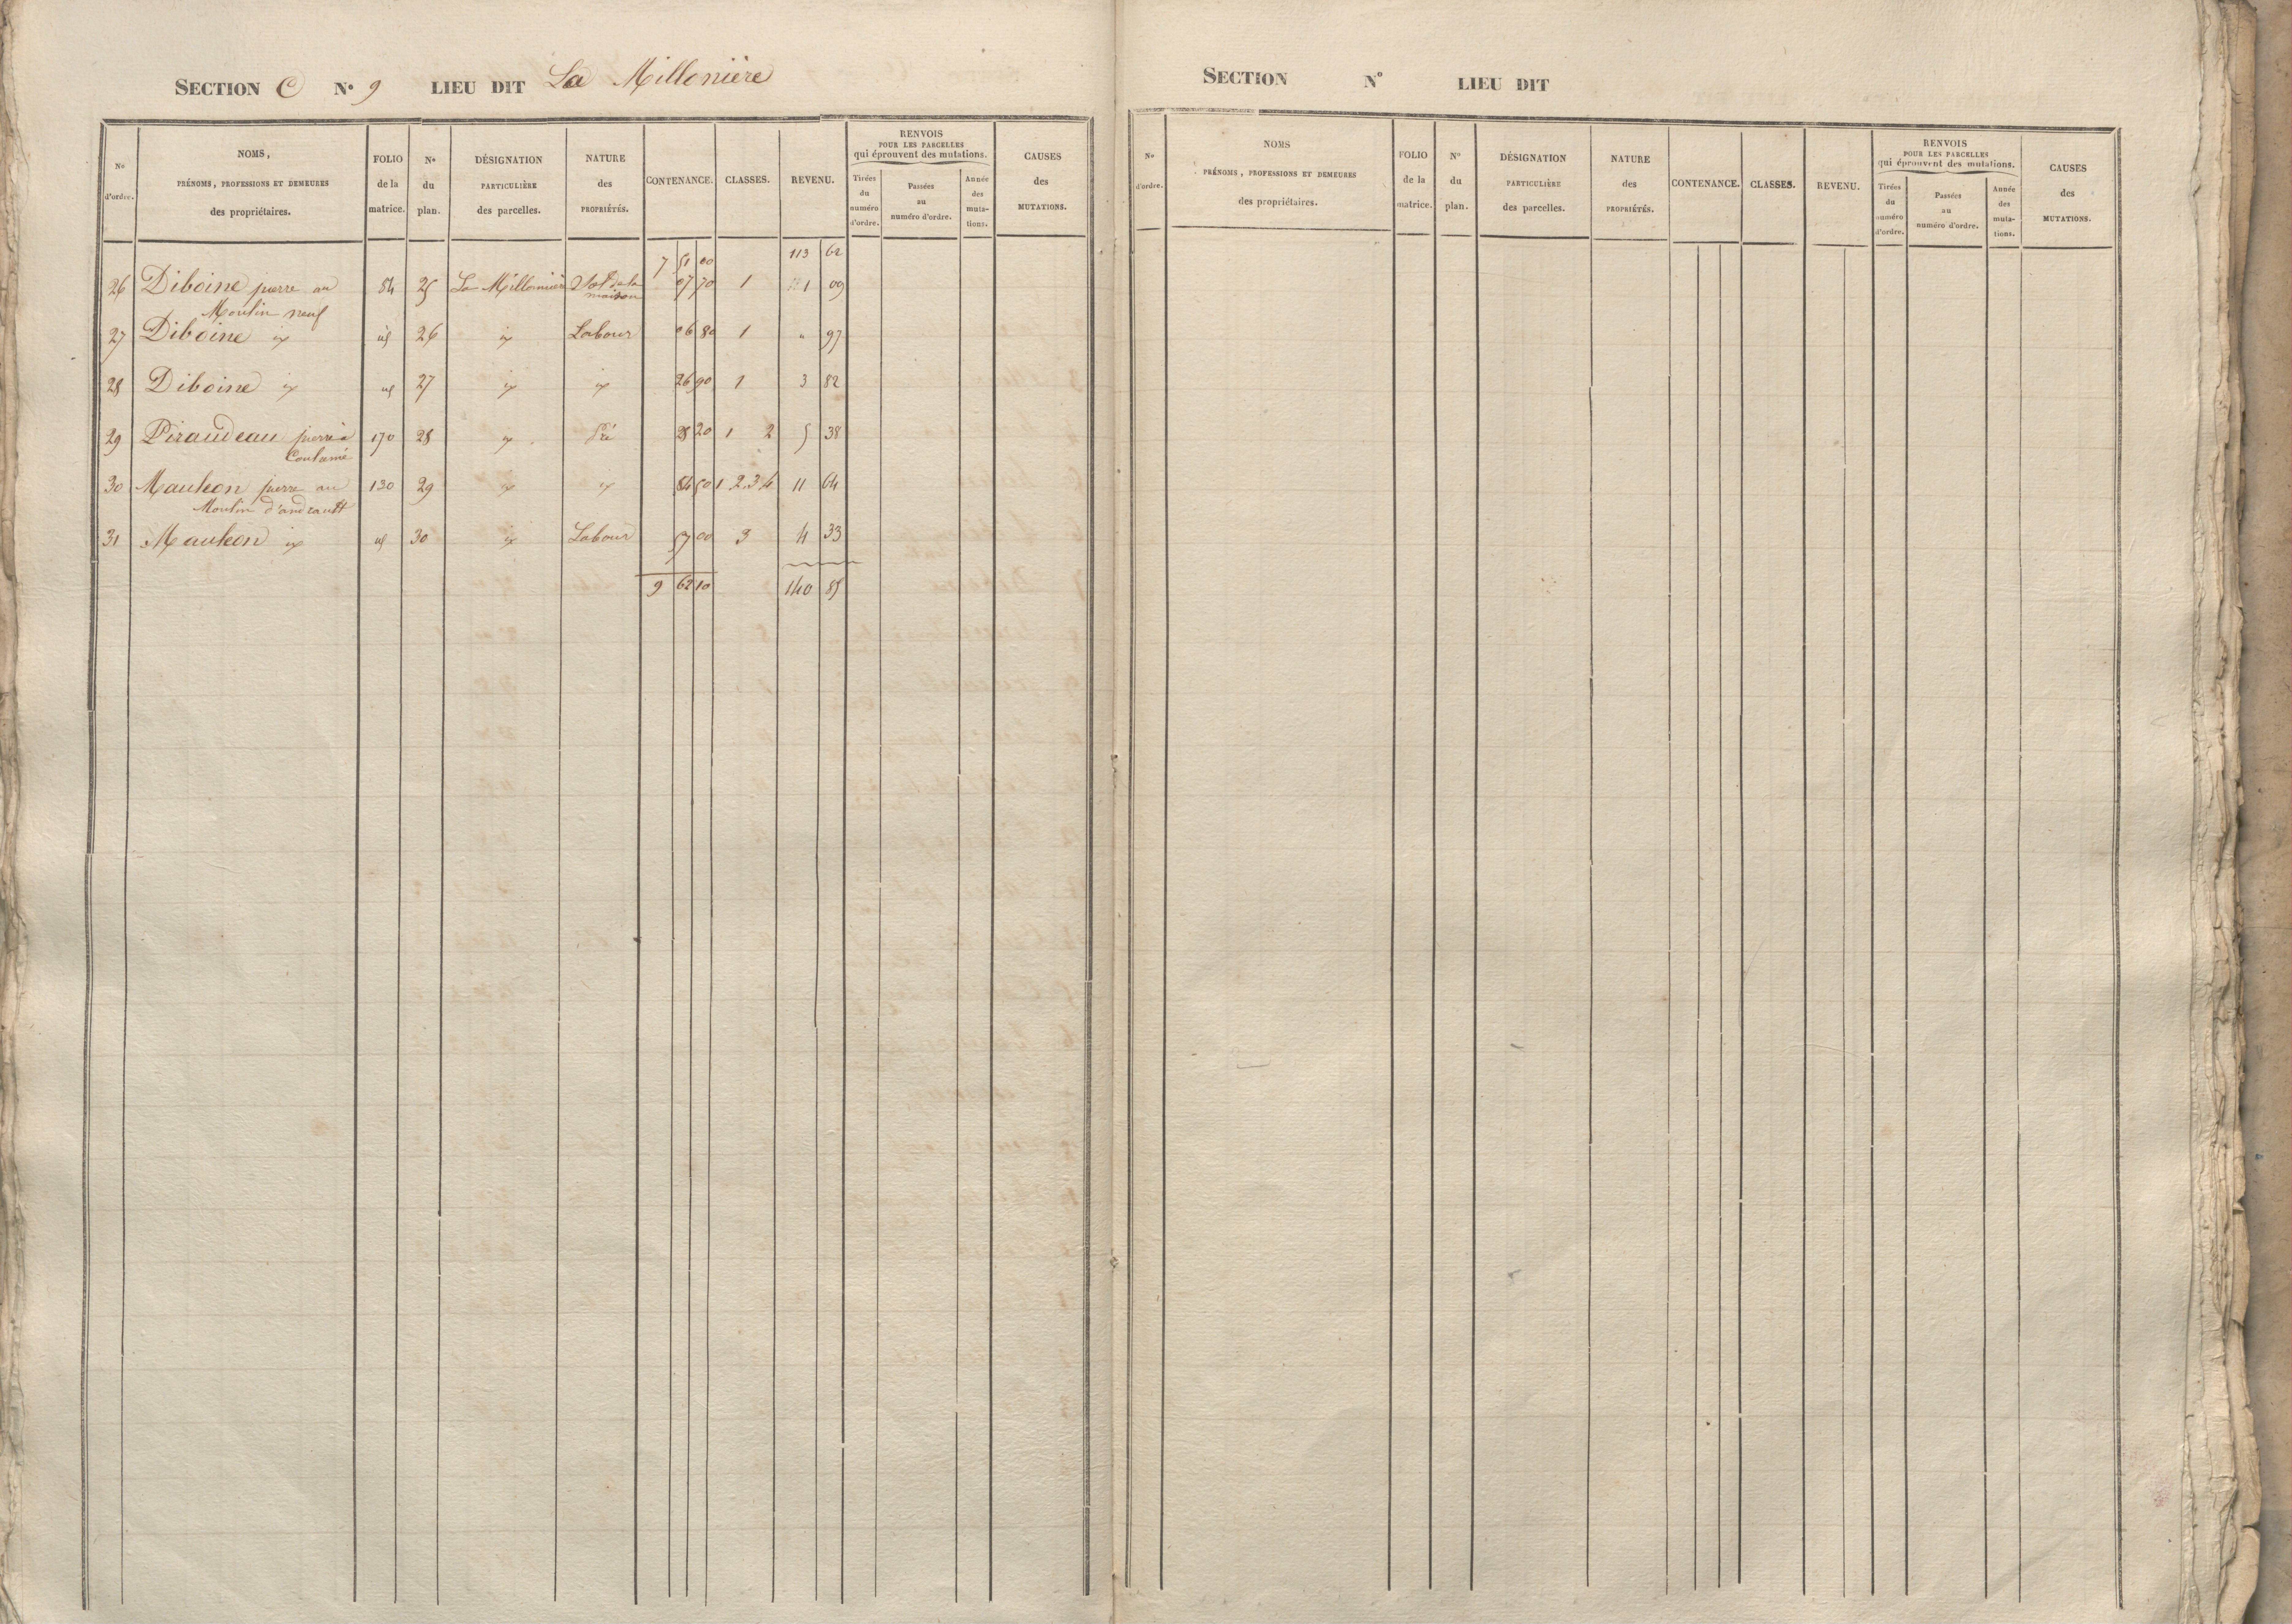 SECTION C No 9 LIEU DIT La Millonière
No d'ordre. NOMS, PRÉNOMS, PROFESSIONS ET DEMEURES des propriétaires. FOLIO de la matrice. No du plan. DÉSIGNATION PARTICULIÈRE des parcelles. NATURE des PROPRIÉTÉS. CONTENANCE. CLASSES. REVENU. RENVOIS POUR LES PARCELLES qui éprouvent des mutations. Tirées du numéro d'ordre. Passées au numéro d'ordre. Année des mutations. CAUSES des MUTATIONS.
7 51 00 113 62
26 Diboine pierre au 84 25 La Millonière Sol de la 07 70 1 1 09
Moulin neuf maison
27 Diboine id 26 id Labour 06 80 1 " 97
28 Diboine id 27 id id 26 90 1 3 82
29 Piraudeau pierre à 170 28 id Pré 28 20 1 2 5 38
30 Mauleon pierre au 130 29 id id 84 50 1 2 3 4 11 64
Moulin d'andrault
31 Mauleon id 30 id Labour 57 00 3 4 33
9 62 10 140 85
SECTION No LIEU DIT
No d'ordre. NOMS PRÉNOMS, PROFESSIONS ET DEMEURES des propriétaires. FOLIO de la matrice. No du plan. DÉSIGNATION PARTICULIÈRE des parcelles. NATURE des PROPRIÉTÉS. CONTENANCE. CLASSES. REVENU. RENVOIS POUR LES PARCELLES qui éprouvent des mutations. Tirées du numéro d'ordre. Passées au numéro d'ordre. Année des mutations. CAUSES des MUTATIONS.